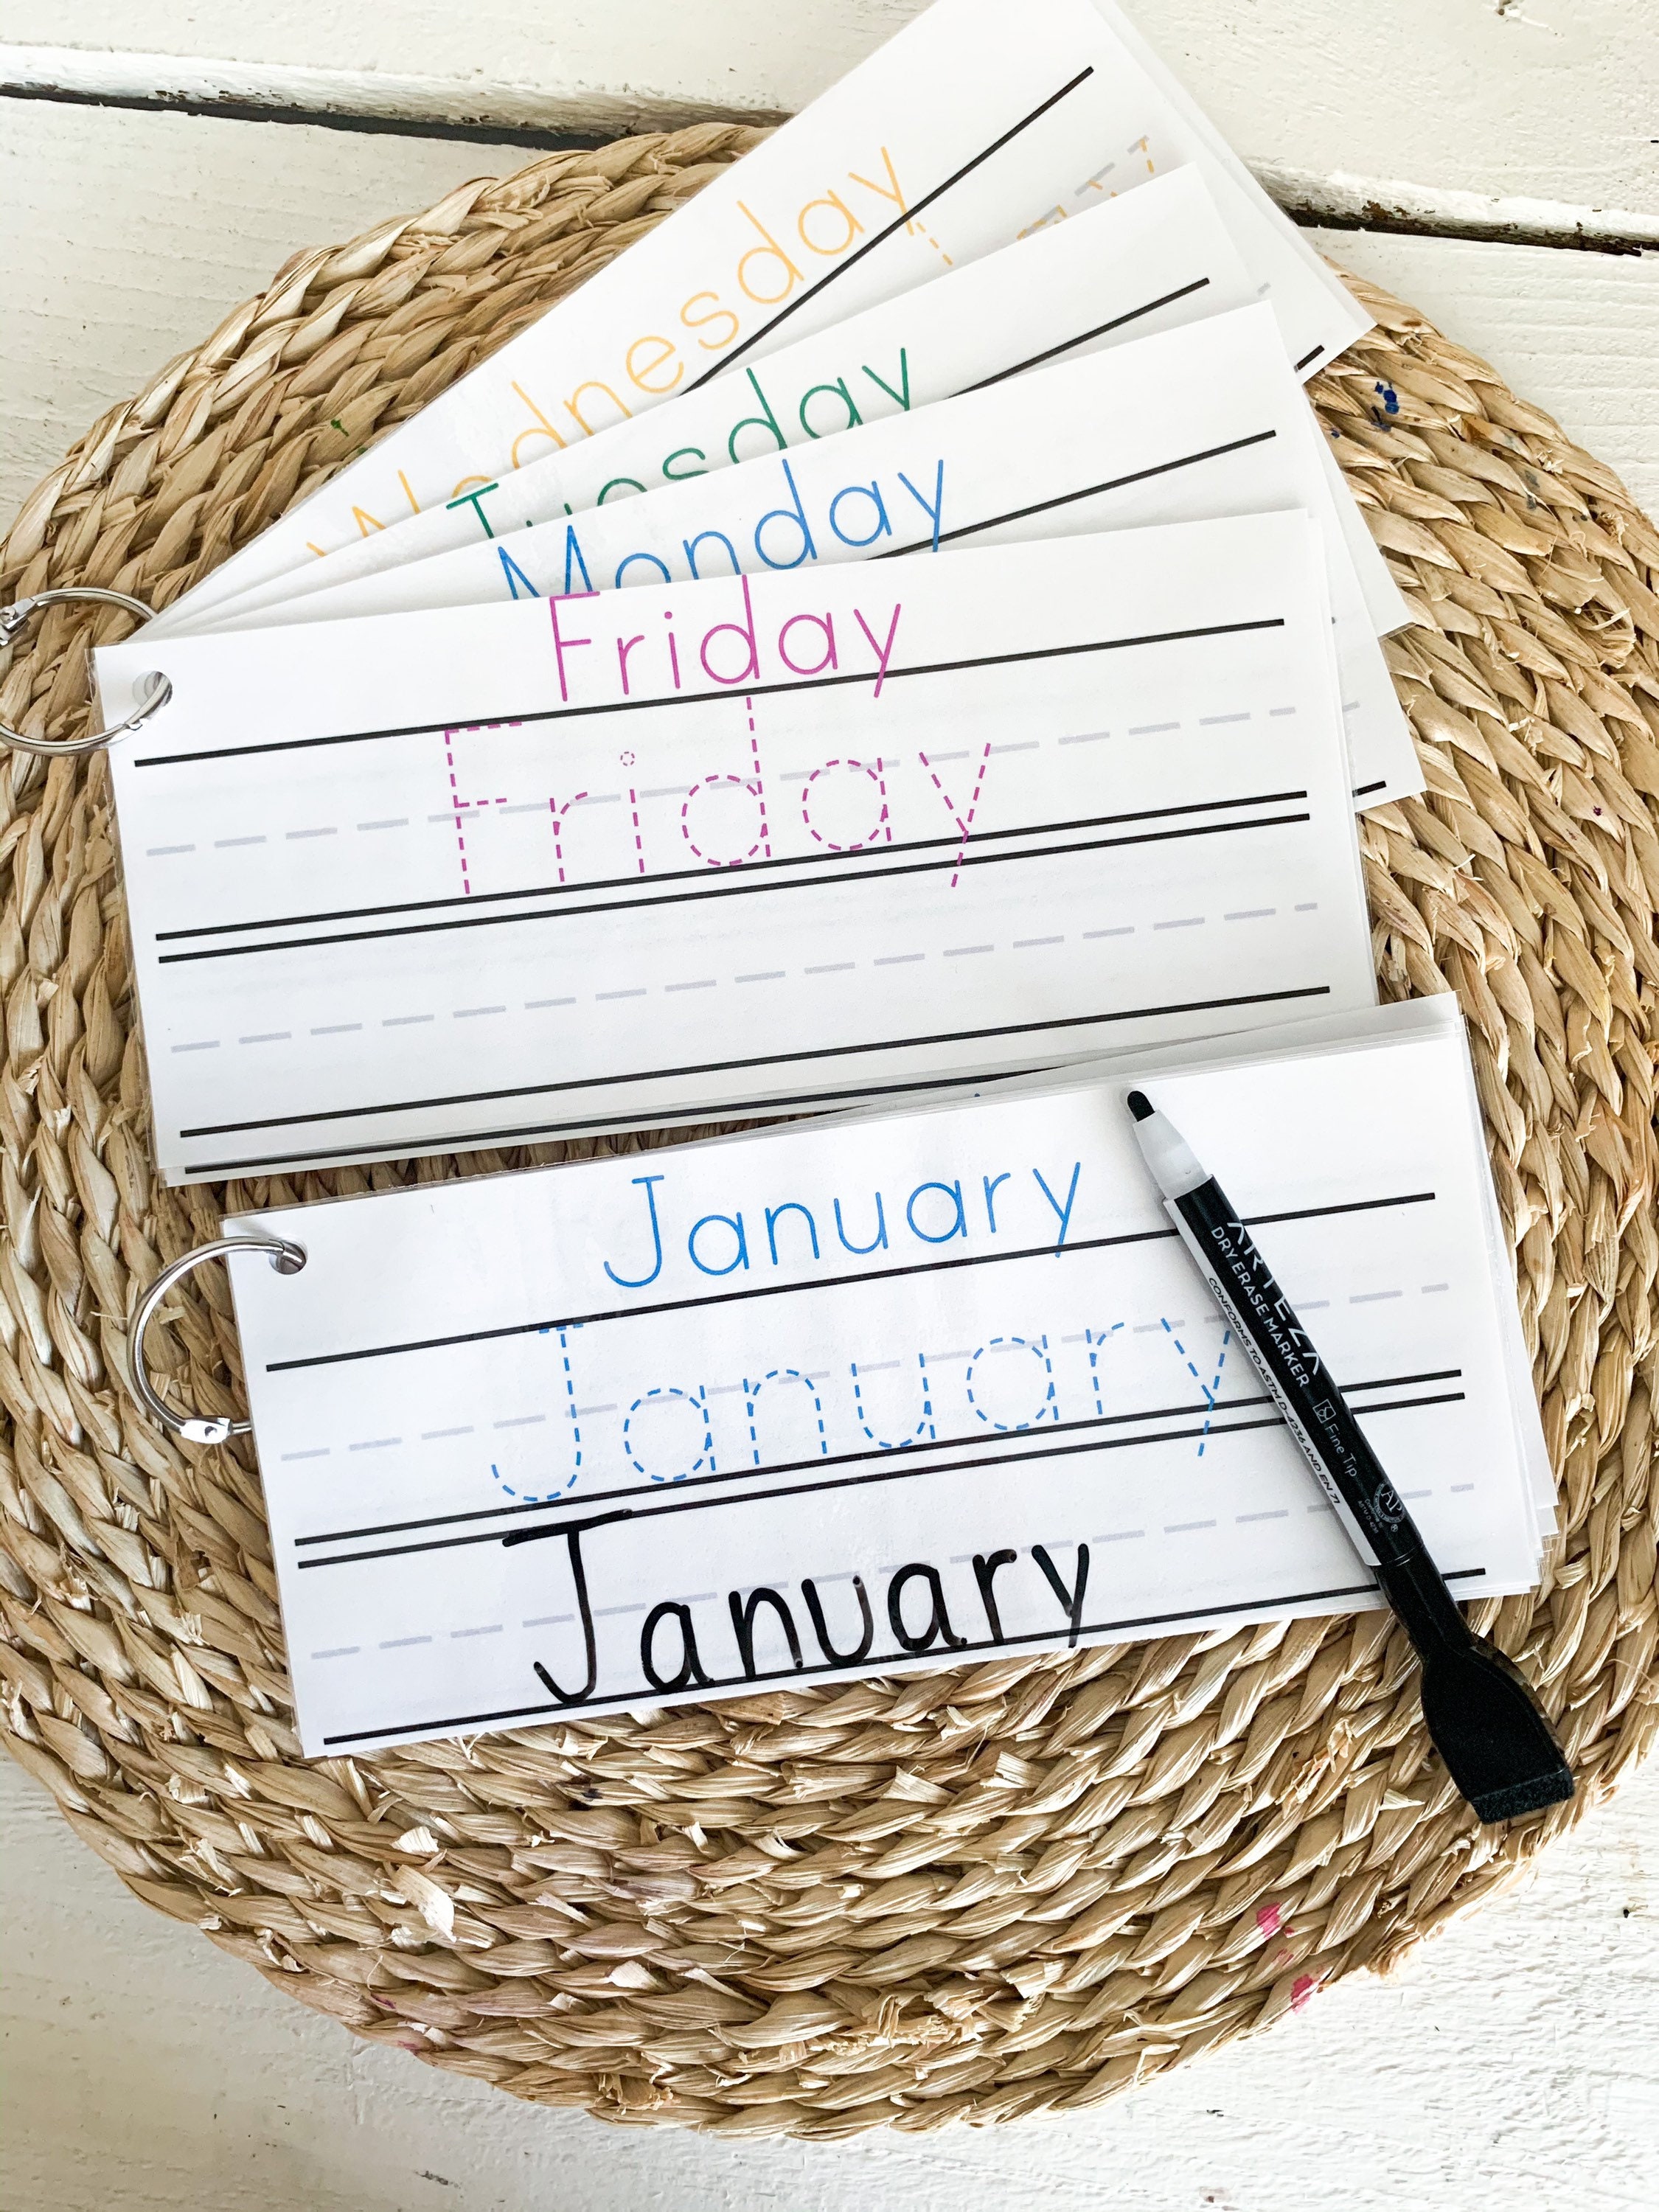 Wednesday
Tuesday
Monday
Friday
Friday
January
January
January
ARTEZA
DRY ERASE MARKER
CONFORMS TO ASTM D-4236 AND EN 71
Fine Tip
AP